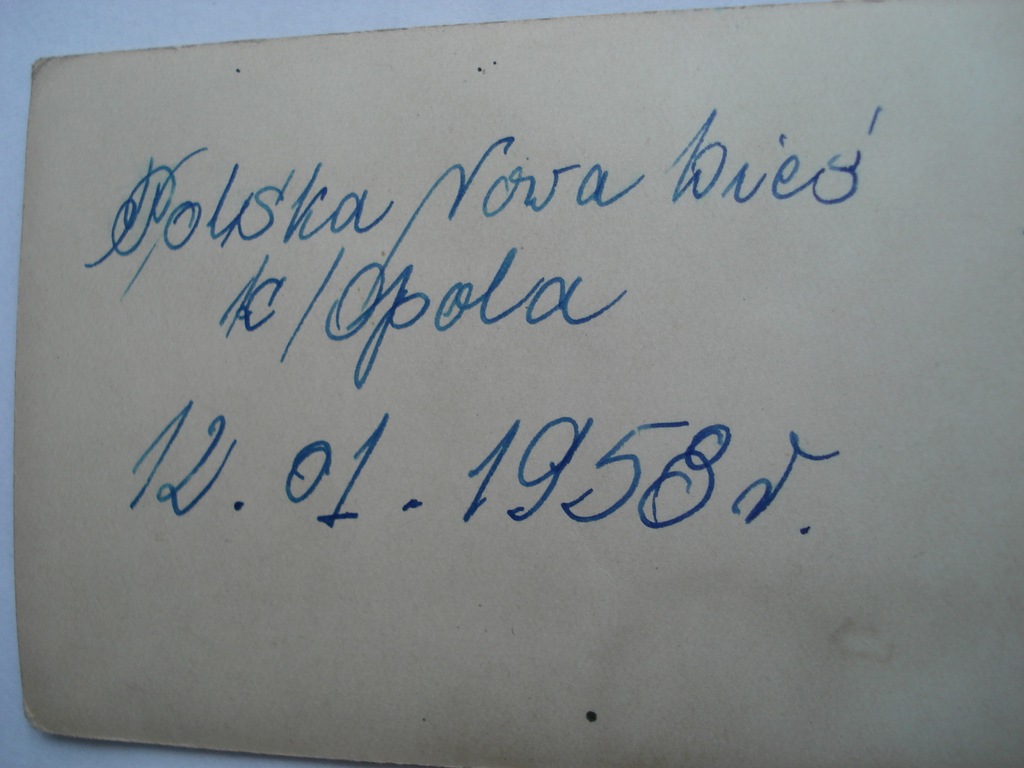 Polska Nowa Wieś
k/Opola
12.01.1958 r.